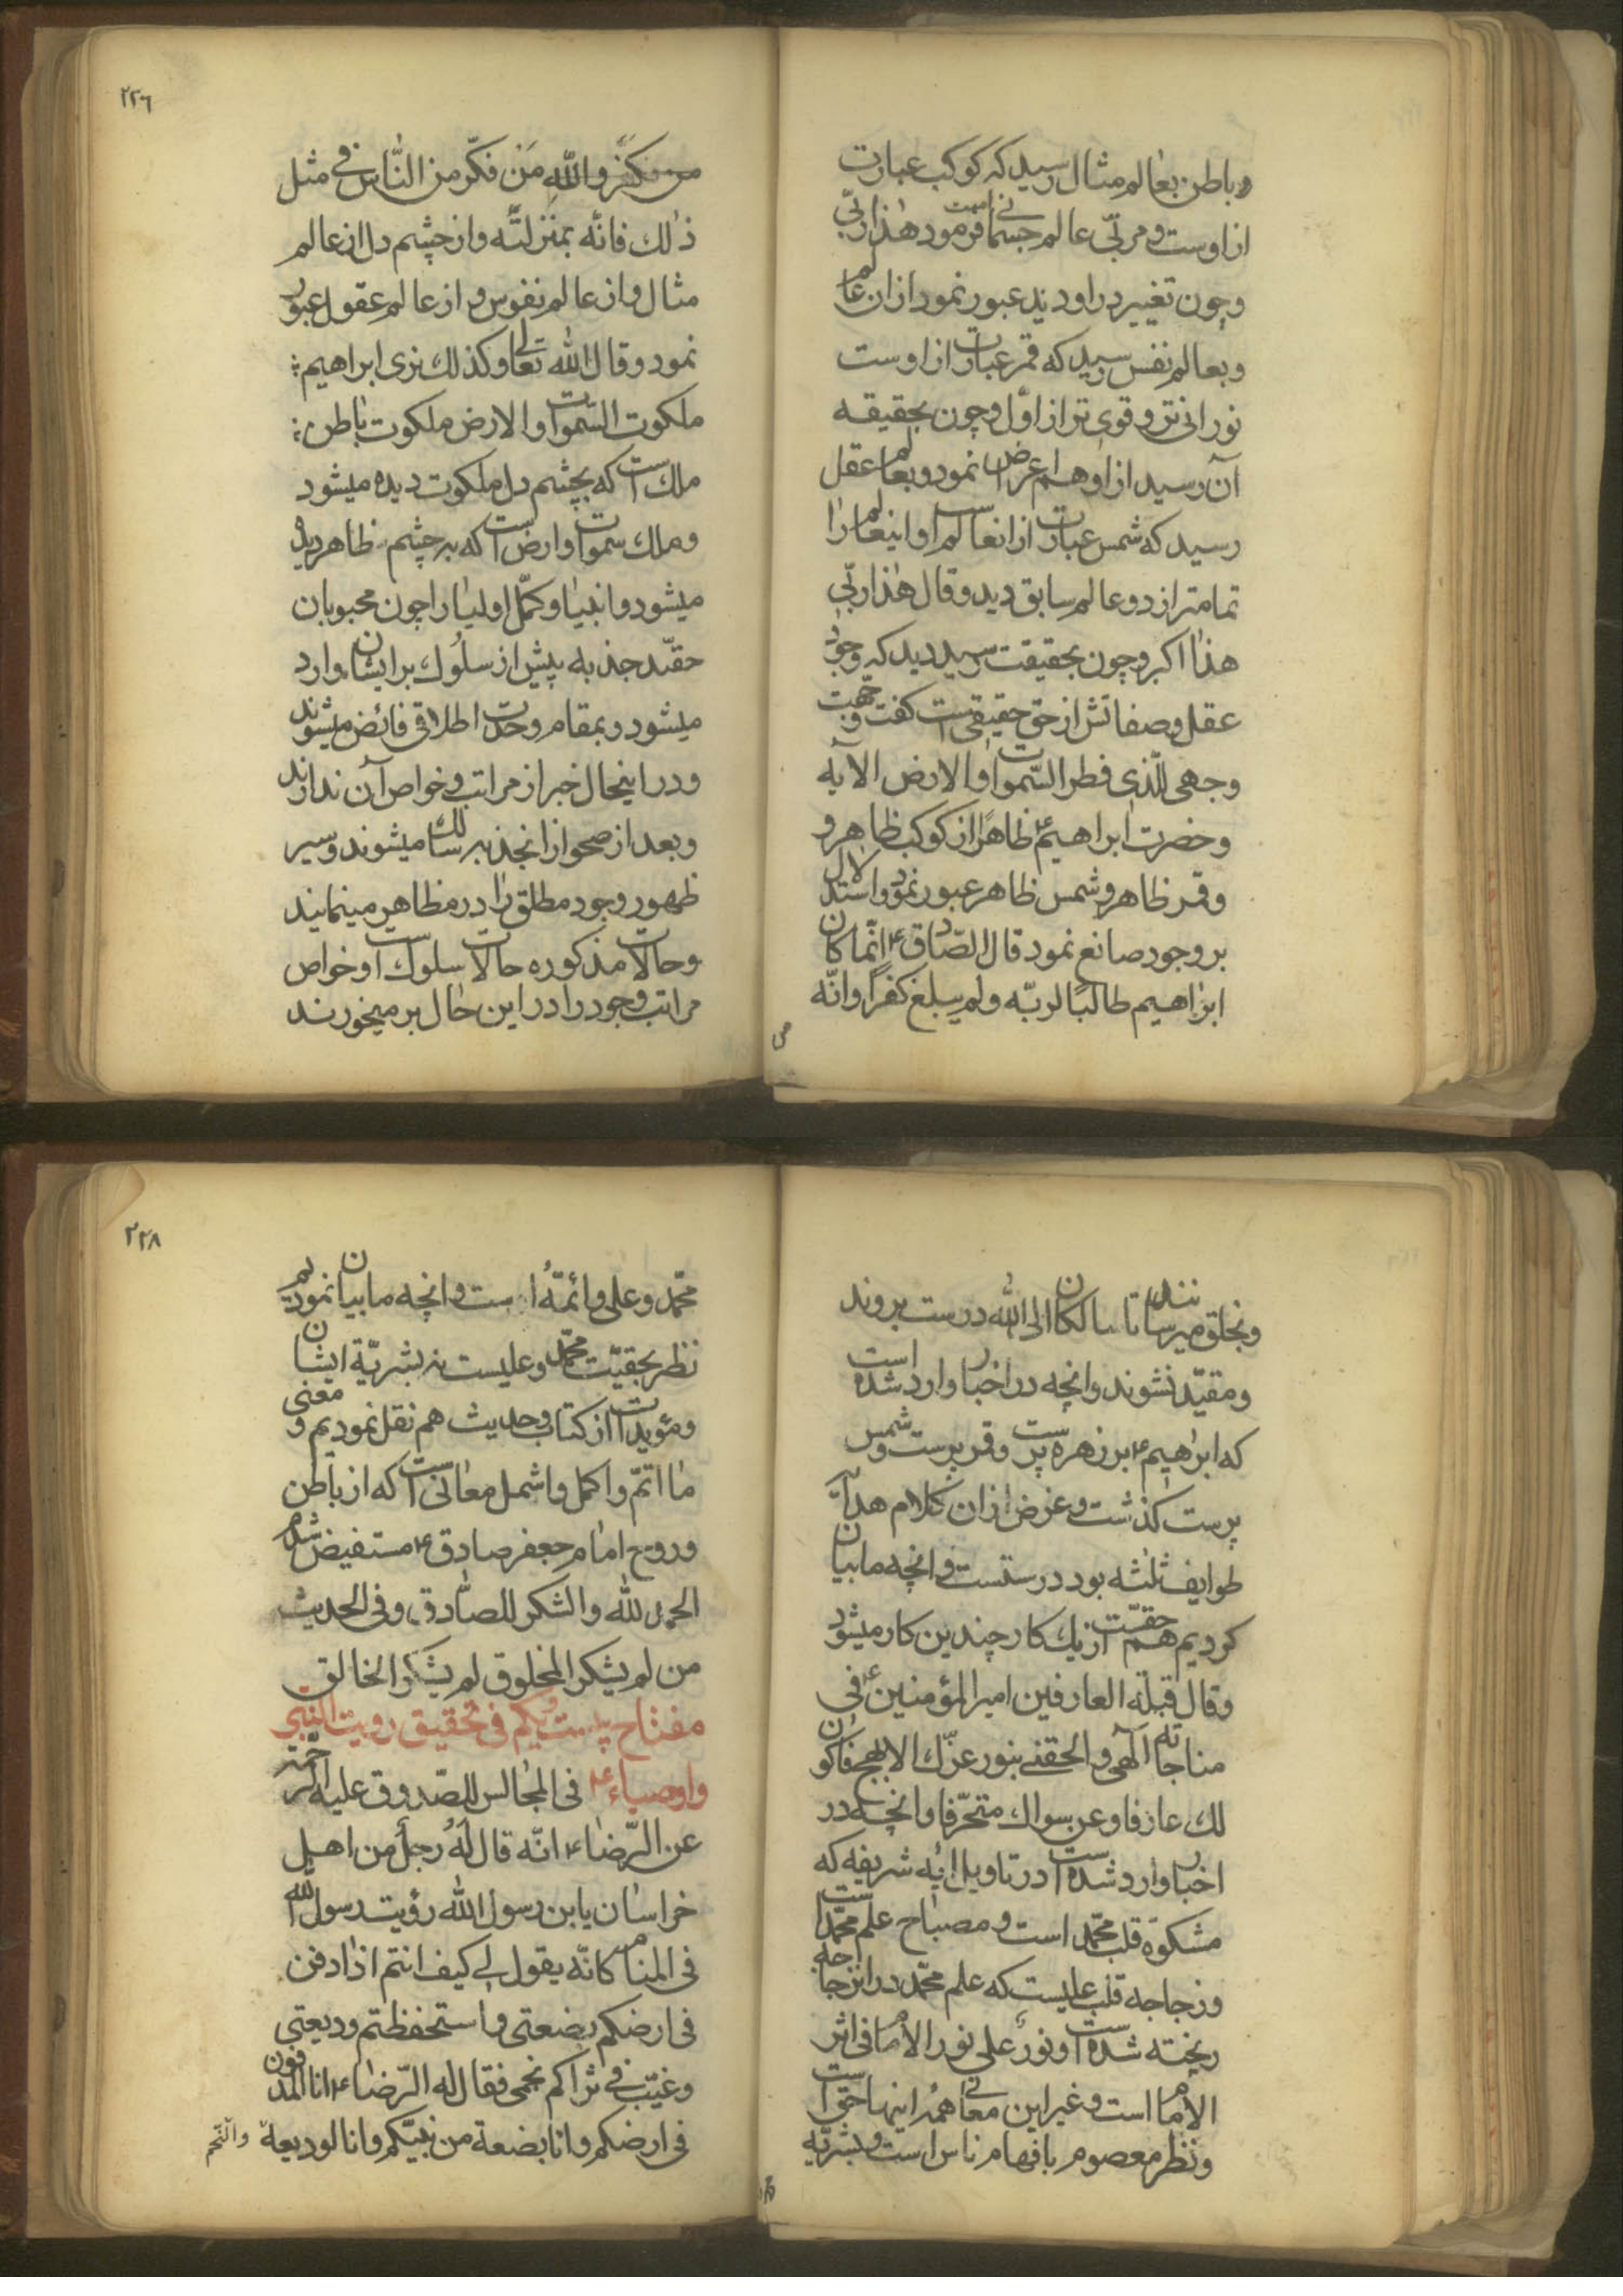 وباطن بعالم مثال رسید که کوکب عبارت
از اوست و مربّی عالم جسمانی است فرمود هٰذا ربّی
وچون تغییر در او دید عبور نمود از ان عالم
وبعالم نفس رسید که قمر عبارت از اوست
نورانی تر و قوی تر از اوّل وچون بحقیقه
آن رسید از او هم اعراض نمود و بعالم عقل
رسید که شمس عبارت از انعالم است و اینعالم را
تمامتر از دو عالم سابق دید و قال هٰذا ربّی
هذا اکبر وچون بحقیقت رسید دید که وجود
عقل وصفاتش از حق حقیقی است گفت وجّهت
وجهی للّذی فطر السّموات والارض الآیه
وحضرت ابراهیم ع ظاهرًا از کوکب ظاهر و
وقمر ظاهر وشمس ظاهر عبور نمود واستدلال
بر وجود صانع نمود قال الصّادق ع انّما کان
ابراهیم طالبًا لربّه ولم یبلغ کفرًا وانّه
من
۲۲٦
من فکر والله مَن فکّر من النّاس فی مثل
ذٰلك فانّه بمنزلته واز چشم دل از عالم
مثال واز عالم نفوس و از عالم عقول عبور
نمود وقال الله تعالی وکذلك نری ابراهیم
ملکوت السّموات والارض ملکوت باطن
ملك است که بچشم دل ملکوت دیده میشود
وملك سموات وارض است که بر چشم ظاهر دیده
میشود وانبیا وکمّل اولیا را چون محبوبان
حقّند جذبه پیش از سلوك بر ایشان وارد
میشود وبمقام وحدت اطلاقی فائض میشوند
ودر اینحال خبر از مراتب وخواص آن ندارند
وبعد از صحو از انجذبه سالك میشوند وسیر
ظهور وجود مطلق را در مظاهر مینمایند
وحالات مذکوره حالات سلوك است وخواص
مراتب وجود را در این حال بر میخورند
وبخلق میرسانند تا سالکان الی الله درست بروند
ومقیّد نشوند وانچه در اخبار وارد شده است
که ابراهیم ع بر زهره پرست وقمر پرست وشمس
پرست گذشت وغرض از ان کلام هدایت
طوایف ثلثه بود درستست وانچه ما بیان
کردیم هم حقّست از یك کار چندین کار میشود
وقال قبلة العارفین امیر المؤمنین ع فی
مناجاته آلهی والحقنی بنور عزّك الابهج فاکون
لك عارفا وعن سواك متحرّفا وانچه در
اخبار وارد شده است در تاویل آیه شریفه که
مشکوة قلب محمّد است ومصباح علم محمّد است
وزجاجه قلب علیست که علم محمّد در این زجاجه
ریخته شده است ونورٌ علی نور الامام فی اثر
الامام است وغیر این معانی همه اینها حق است
ونظر معصوم بافهام ناس است وبشریّه
۲۲۸
محمّد وعلی وائمّه است وانچه ما بیان نمودیم
نظر بحقیّت محمّد وعلیست نه بشریّة ایشان
ومؤیدات از کتاب وحدیث هم نقل نمودیم و معنی
ما اتمّ واکمل واشمل معانی است که از باطن
وروح امام جعفر صادق ع مستفیض شدم
الحمد لله والشکر للصّادق وفی الحدیث
من لم یشکر المخلوق لم یشکر الخالق
مفتاح بیست ویکم فی تحقیق رویت النّبی
واوصیاء ع فی المجالس للصّدوق علیه الرّحمة
عن الرّضا ع انّه قال لهُ رجلٌ من اهل
خراسان یابن رسول الله رؤیت رسول الله
فی المنام کانّه یقول لی کیف انتم اذا دفن
فی ارضکم بضعتی واستحفظتم ودیعتی
وغیّب فی ثراکم نجمی فقال له الرّضا ع انا المدفون
فی ارضکم وانا بضعة من نبیّکم وانا الودیعة والنّجم